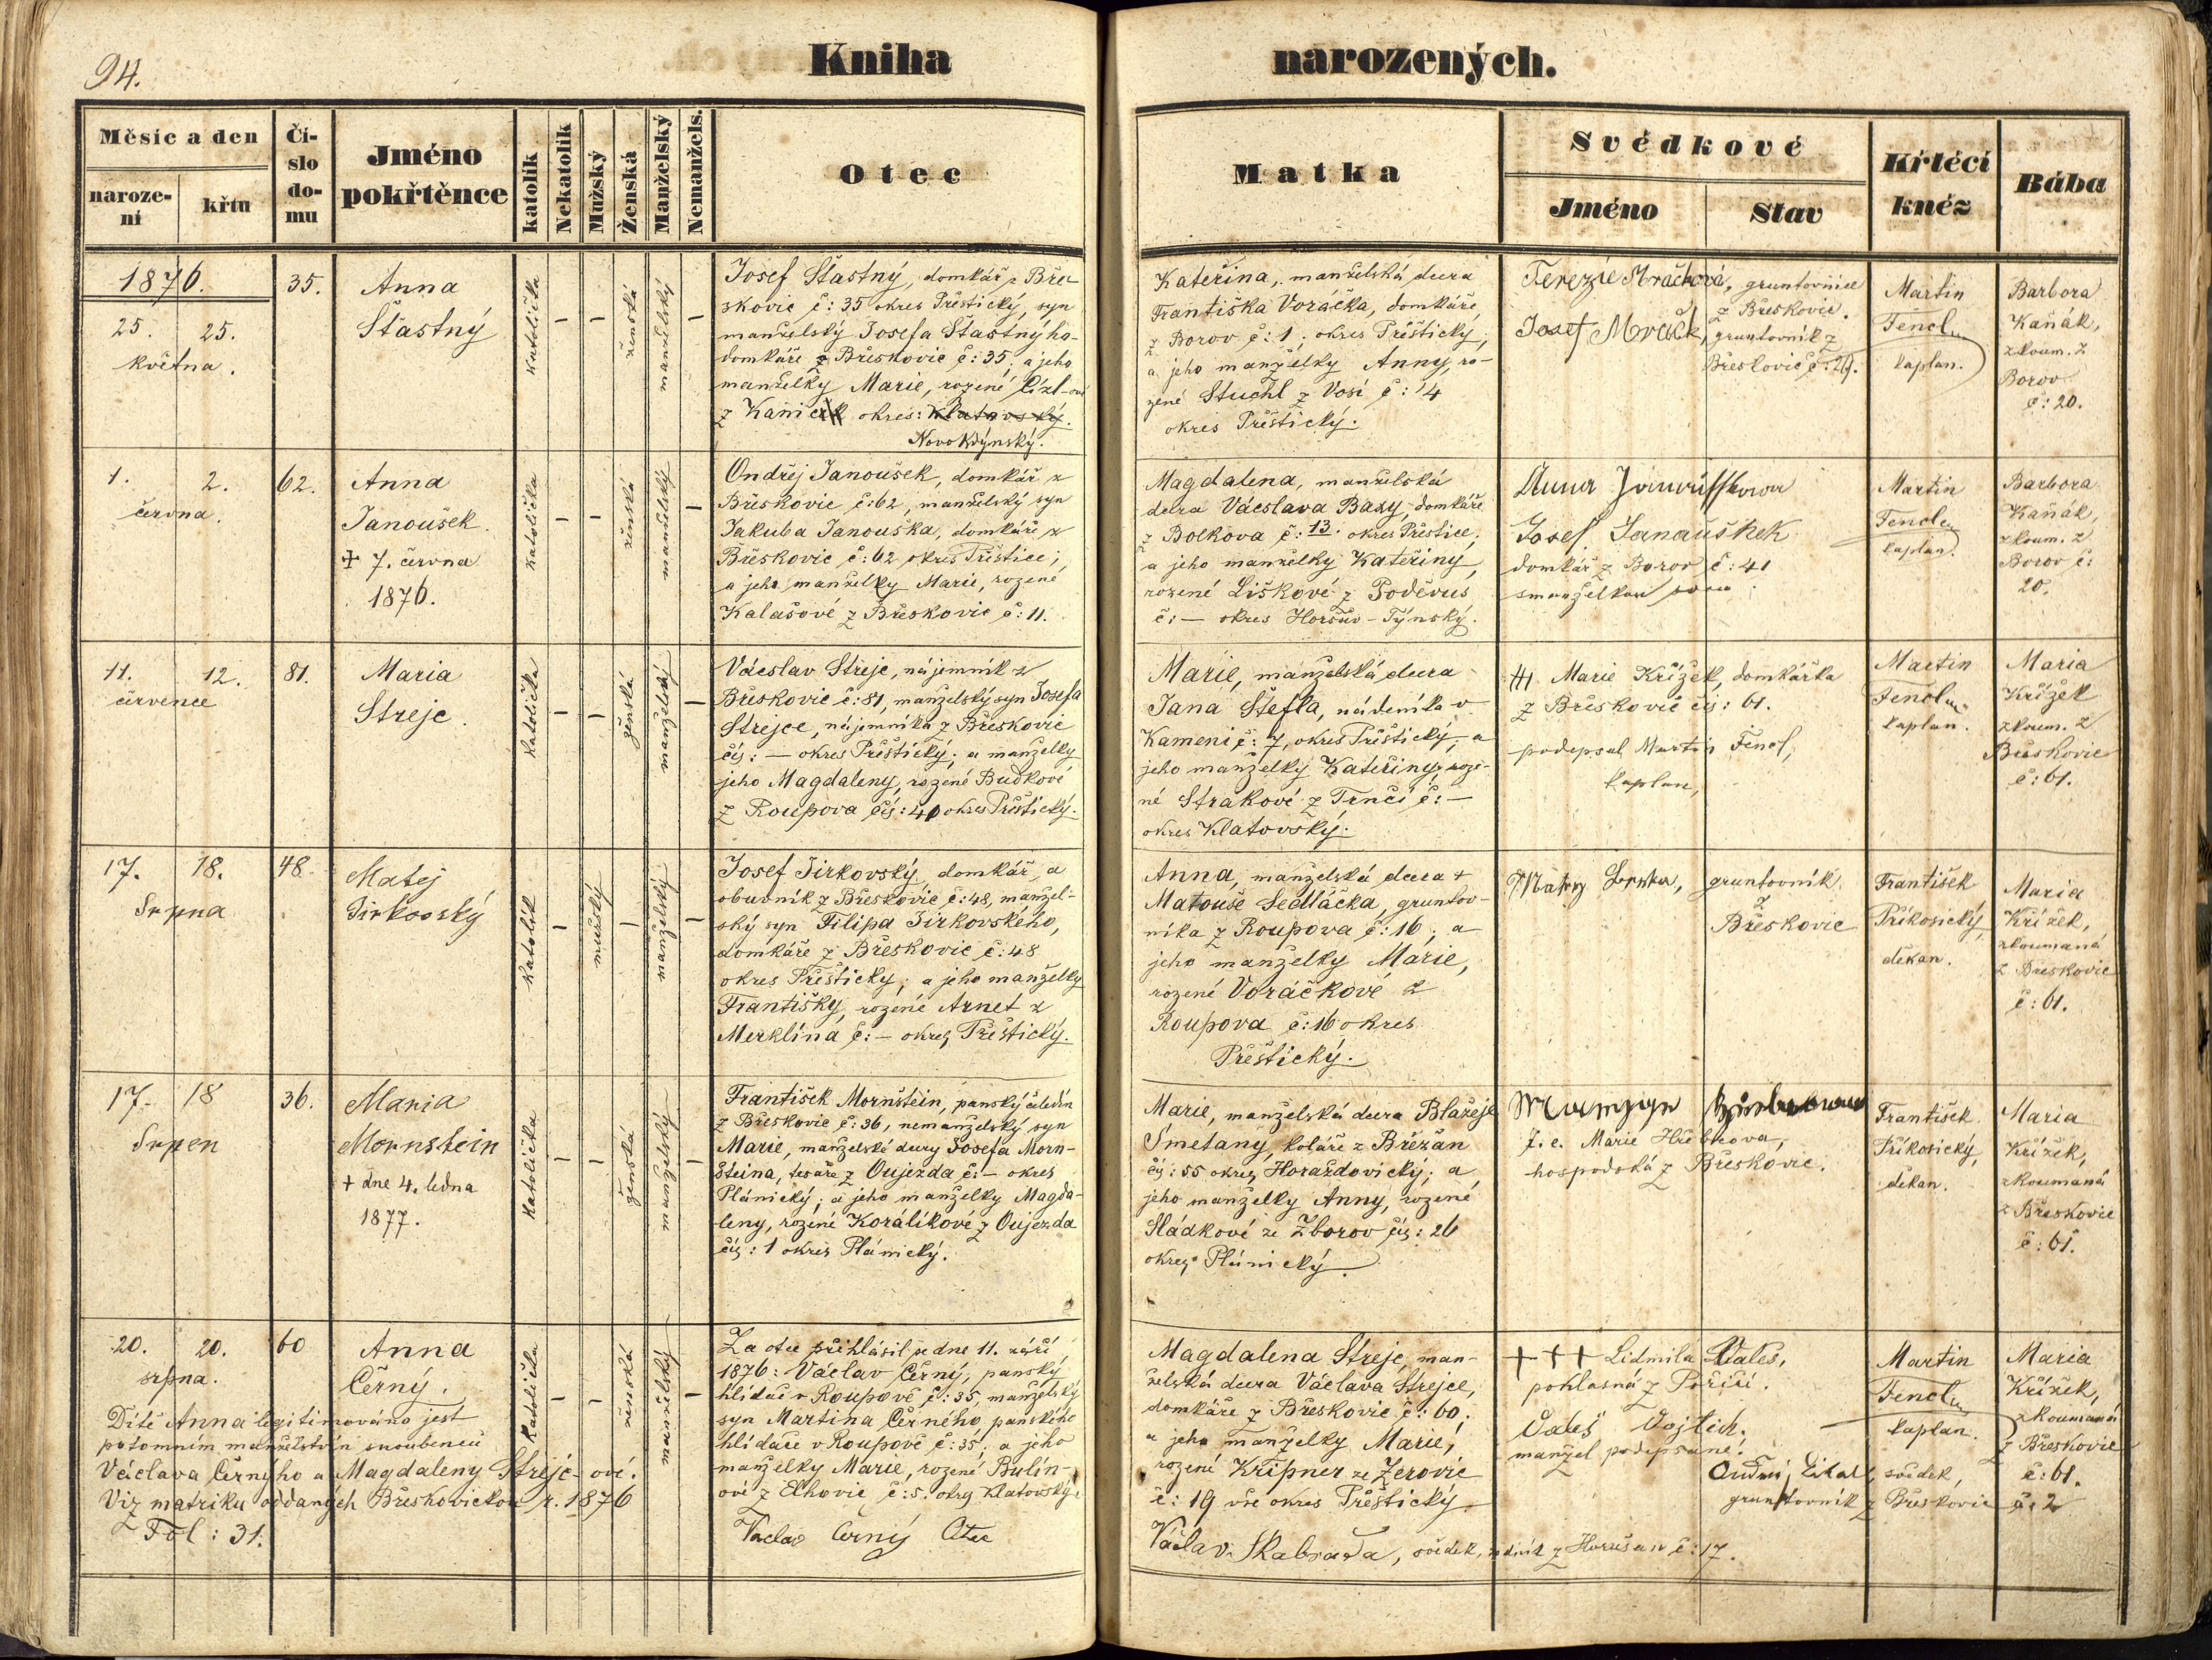 94.
Kniha narozených.
Měsíc a den
naroze-
ní
křtu
Čí-
slo
do-
mu
Jméno
pokřtěnce
katolík
Nekatolík
Mužský
Ženská
Manželský
Nemanžels.
Otec
Matka
Svědkové
Jméno
Stav
Křtěcí
kněz
Bába
1876.
25. 25.
května.
35.
Anna
Šťastný
katolička
–
–
ženská
manželský
–
Josef Šťastný, domkář z Bře-
skovic č: 35 okres Přeštický, syn
manželský Josefa Šťastnýho-
domkáře z Břeskovic č: 35; a jeho
manželky Marie, rozené
z Kanic okres: Klatovský.
Novo Kdýnský.
Kateřina, manželská dcera
Františka Voráčka, domkáře
z Borov č: 1; okres Přeštický;
a jeho manželky Anny, ro-
zené Stuchl z Vosí č: 14
okres Přeštický.
Terezie Mračková, gruntovnice
z Břeskovic.
Josef Mraček, gruntovník z
Břeskovic č: 29.
Martin
Fencl
kaplan.
Barbora
Kaňák,
zkoum. z
Borov
č: 20.
1. 2.
června.
62.
Anna
Janoušek.
+ 7. června
1876.
katolička
–
–
ženská
manželský
–
Ondřej Janoušek, domkář z
Břeskovic č: 62, manželský syn
Jakuba Janouška, domkáře z
Břeskovic č: 62 okres Přeštice;
a jeho manželky Marie, rozené
Kalašové z Břeskovic č: 11.
Magdalena, manželská
dcera Václava Baxy, domkáře
z Bolkova č: 13. okres Přeštice;
a jeho manželky Kateřiny,
rozené Liškové z Poděvus
č: – okres Horšův-Týnský.
Anna
Josef Janaušhek
domkář z Borov č: 41
s manželkou
Martin
Fencl
kaplan.
Barbora
Kaňák,
zkoum. z
Borov č:
20.
11. 12.
července
81.
Maria
Strejc.
katolička
–
–
ženská
manželský
–
Václav Strejc, nájemník z
Břeskovic č: 81, manželský syn Josefa
Strejce, nájemníka z Břeskovic
čís: – okres Přeštický; a manželky
jeho Magdaleny, rozené Buďkové
z Roupova čís: 40 okres Přeštický.
Marie, manželská dcera
Jana Štefla, nádeníka v
Kamení č: 7, okres Přeštický; a
jeho manželky Kateřiny, roze-
né Strakové z Trnčí č: –
okres Klatovský.
+++ Marie Křížek, domkářka
z Břeskovic čís: 61.
podepsal Martin Fencl,
kaplan,
Martin
Fencl
kaplan.
Maria
Křížek
zkoum. z
Břeskovic
č: 61.
17. 18.
Srpna
48.
Matěj
Jirkovský
katolík
–
mužský
–
manželský
–
Josef Jirkovský, domkář, a
obuvník z Břeskovic č: 48, manžel-
ský syn Filipa Jirkovského,
domkáře z Břeskovic č: 48
okres Přeštický; a jeho manželky
Františky, rozené Arnet z
Merklína č: – okres Přeštický.
Anna, manželská dcera +
Matouše Sedláčka, gruntov-
níka z Roupova č: 16; a
jeho manželky Marie,
rozené Voráčkové z
Roupova č: 16 okres
Přeštický.
gruntovník
z
Břeskovic
František
Příkosický,
děkan.
Maria
Křížek,
zkoumaná
z Břeskovic
č: 61.
17. 18
Srpen
36.
Maria
Mornstein
+ dne 4. ledna
1877.
katolička
–
–
ženská
manželský
–
František Mornštein, panský čeledín
z Břeskovic č: 36, nemanželský syn
Marie, manželské dcery Josefa Morn-
šteina, tesaře z Oujezda č: – okres
Plánický; a jeho manželky Magda-
leny, rozené Korálíkové z Oujezda
čís: 1 okres Plánický.
Marie, manželská dcera Blažeje
Smetany, koláře z Břežan
čís: 55 okres Horažďovický; a
jeho manželky Anny, rozené
Sládkové ze Zborov čís: 26
okres Plánický.
t. e. Marie Hřebcová,
hospodská z Břeskovic.
František
Příkosický,
děkan.
Maria
Křížek,
zkoumaná
z Břeskovic
č: 61.
20. 20.
srpna.
60
Anna
Černý.
katolička
–
–
ženská
manželský
–
Dítě Anna legitimováno jest
potomním manželstvím snoubenců
Václava Černýho a Magdaleny Strejc-ové.
Viz matriku oddaných Břeskovickou r. 1876
Fol: 31.
Za otce přihlásil se dne 11. září
1876: Václav Černý, panský
hlídač v Roupově č: 35, manželský
syn Martina Černého, panského
hlídače v Roupově č: 35; a jeho
manželky Marie, rozené Bulín-
ové z Elhovic č: 5. okres Klatovský.
Václav Černý Otec
Magdalena Strejc, man-
želská dcera Václava Strejce,
domkáře z Břeskovic č: 60;
a jeho manželky Marie,
rozené Kripner ze Žerovic
č: 19 vše okres Přeštický.
Václav Skabrada, svědek, z Horušan č: 17.
+++ Lidmila Valeš,
poklasná z Poříčí.
Valeš Vojtěch.
manžel podepsané.
Ondřej svědek,
gruntovník z Břeskovic č: 2
Martin
Fencl
kaplan.
Maria
Křížek,
zkoumaná
z Břeskovic
č: 61.